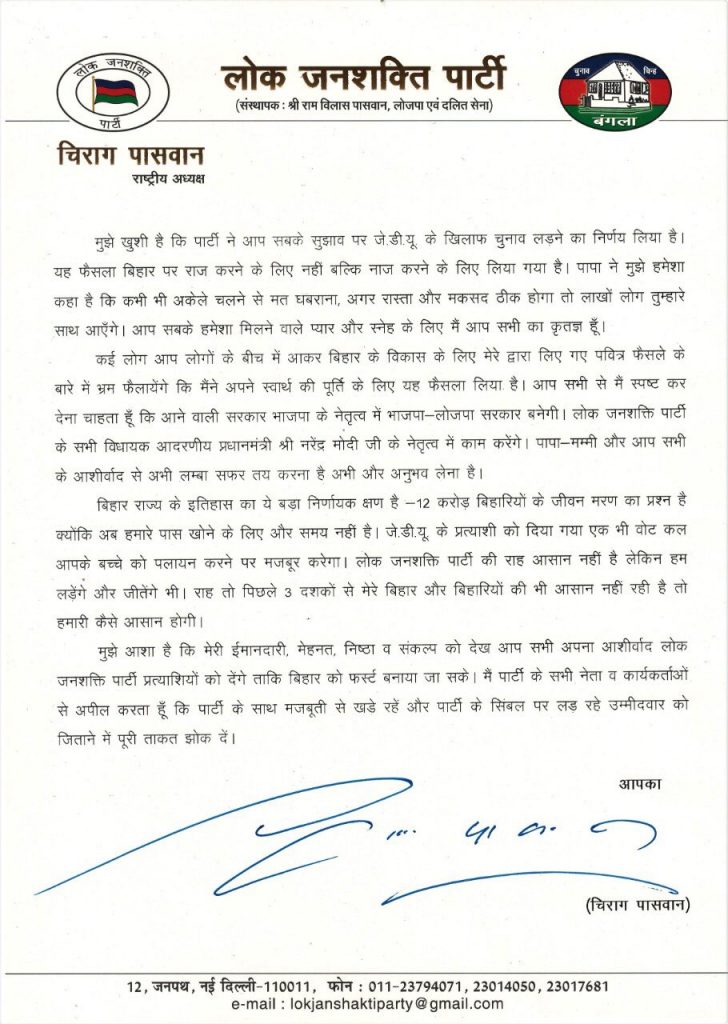 लोक जनशक्ति
पार्टी
लोक जनशक्ति पार्टी
(संस्थापक : श्री राम विलास पासवान, लोजपा एवं दलित सेना)
चुनाव चिन्ह
बंगला
चिराग पासवान
राष्ट्रीय अध्यक्ष
मुझे खुशी है कि पार्टी ने आप सबके सुझाव पर जे.डी.यू. के खिलाफ चुनाव लड़ने का निर्णय लिया है।
यह फैसला बिहार पर राज करने के लिए नहीं बल्कि नाज करने के लिए लिया गया है। पापा ने मुझे हमेशा
कहा है कि कभी भी अकेले चलने से मत घबराना, अगर रास्ता और मकसद ठीक होगा तो लाखों लोग तुम्हारे
साथ आएँगे। आप सबके हमेशा मिलने वाले प्यार और स्नेह के लिए मैं आप सभी का कृतज्ञ हूँ।
कई लोग आप लोगों के बीच में आकर बिहार के विकास के लिए मेरे द्वारा लिए गए पवित्र फैसले के
बारे में भ्रम फैलायेंगे कि मैंने अपने स्वार्थ की पूर्ति के लिए यह फैसला लिया है। आप सभी से मैं स्पष्ट कर
देना चाहता हूँ कि आने वाली सरकार भाजपा के नेतृत्व में भाजपा–लोजपा सरकार बनेगी। लोक जनशक्ति पार्टी
के सभी विधायक आदरणीय प्रधानमंत्री श्री नरेंद्र मोदी जी के नेतृत्व में काम करेंगे। पापा–मम्मी और आप सभी
के आशीर्वाद से अभी लम्बा सफर तय करना है अभी और अनुभव लेना है।
बिहार राज्य के इतिहास का ये बड़ा निर्णायक क्षण है –12 करोड़ बिहारियों के जीवन मरण का प्रश्न है
क्योंकि अब हमारे पास खोने के लिए और समय नहीं है। जे.डी.यू. के प्रत्याशी को दिया गया एक भी वोट कल
आपके बच्चे को पलायन करने पर मजबूर करेगा। लोक जनशक्ति पार्टी की राह आसान नहीं है लेकिन हम
लड़ेंगे और जीतेंगे भी। राह तो पिछले 3 दशकों से मेरे बिहार और बिहारियों की भी आसान नहीं रही है तो
हमारी कैसे आसान होगी।
मुझे आशा है कि मेरी ईमानदारी, मेहनत, निष्ठा व संकल्प को देख आप सभी अपना आशीर्वाद लोक
जनशक्ति पार्टी प्रत्याशियों को देंगे ताकि बिहार को फर्स्ट बनाया जा सके। मैं पार्टी के सभी नेता व कार्यकर्ताओं
से अपील करता हूँ कि पार्टी के साथ मजबूती से खडे रहें और पार्टी के सिंबल पर लड़ रहे उम्मीदवार को
जिताने में पूरी ताकत झोक दें।
आपका
(चिराग पासवान)
12, जनपथ, नई दिल्ली-110011, फोन : 011-23794071, 23014050, 23017681
e-mail : lokjanshaktiparty@gmail.com